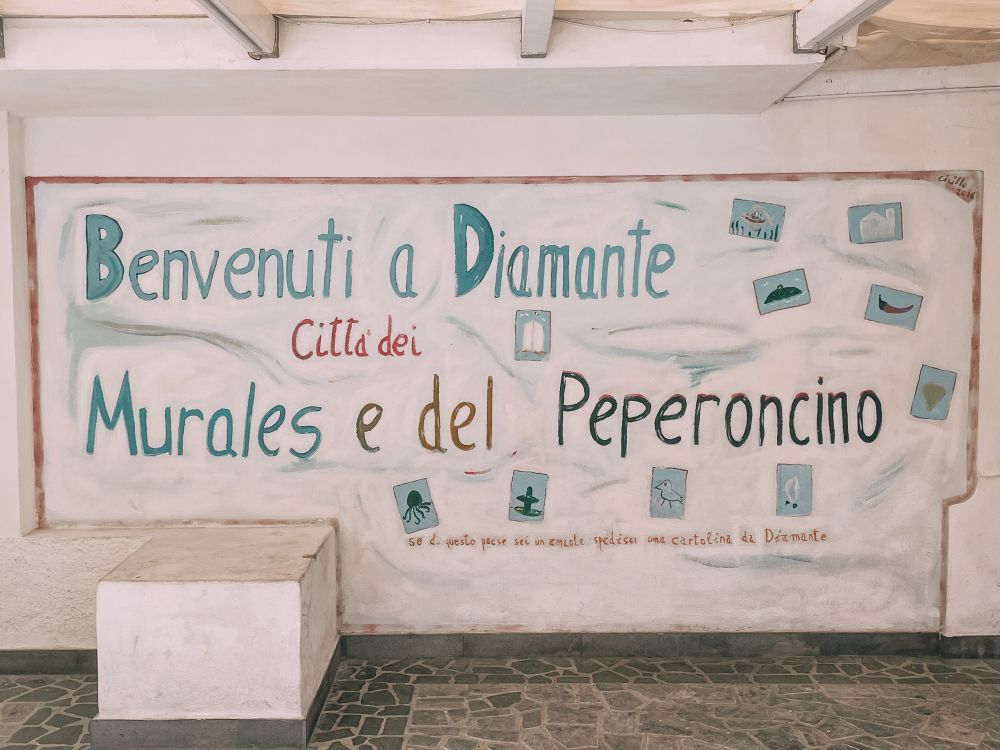 Benvenuti a Diamante
Città dei
Murales e del Peperoncino
se di questo paese sei un amante spedisci una cartolina da Diamante
2016